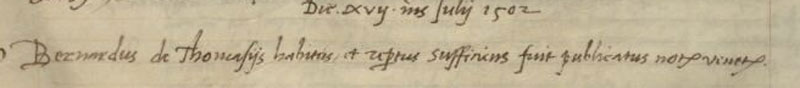 Die. xvij. ms Julij 1502
Bernardus de Thomasijs habitus, et reptus sufficiens fuit publicatus not venet.